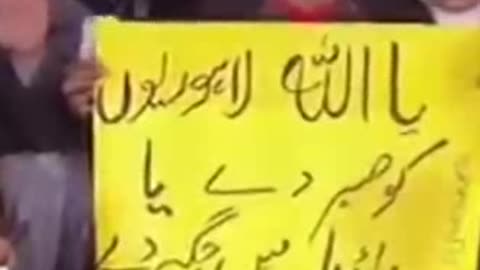 یا اللہ لاہوریوں
کو صبر دے یا
میں جگہ دے